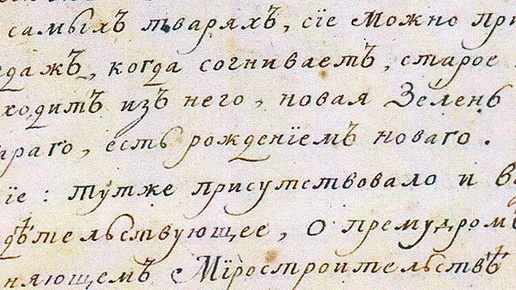 самыхъ тваряхъ, сїе можно при
едаж̾ъ, когда согниваетъ, старое
ходитъ изъ него, новая зелень
араго, есть рожденїемъ новаго.
їе: тутже присутствовало и в
дѣтельствующее, о премудромъ
няющемъ Мїростроительствѣ